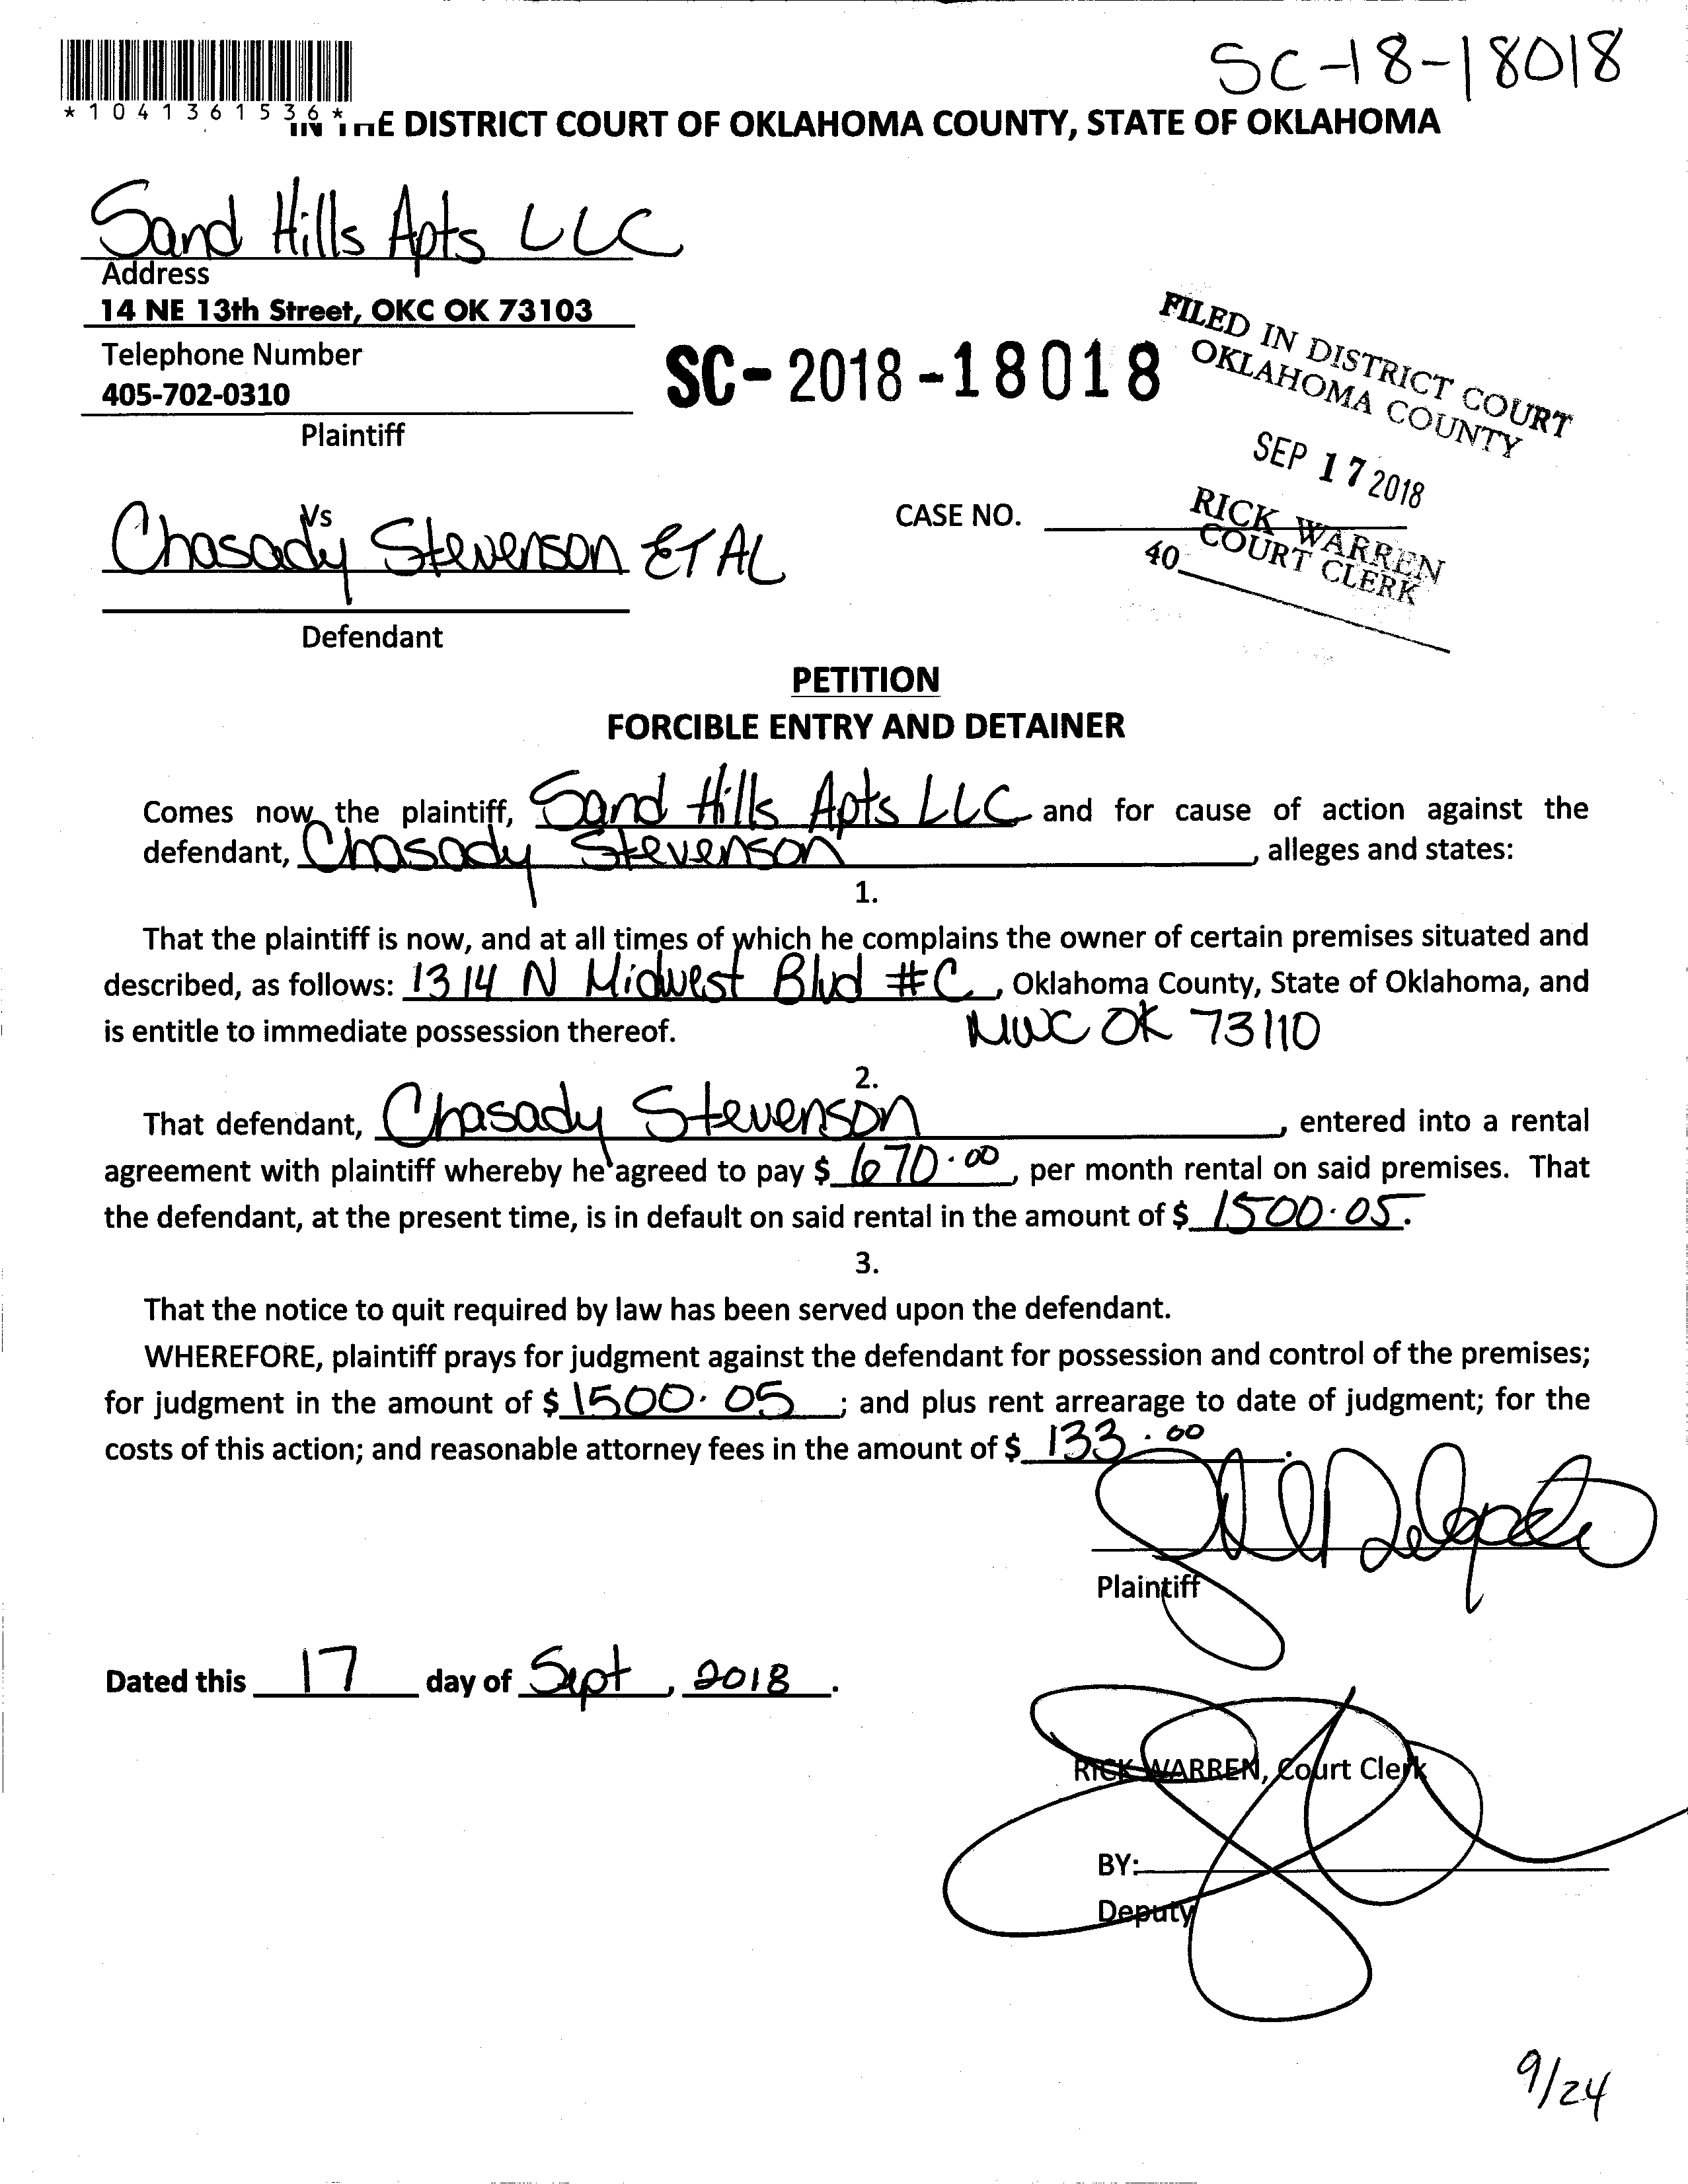 SC-18-18018
*1041361536*
IN THE DISTRICT COURT OF OKLAHOMA COUNTY, STATE OF OKLAHOMA
Sand Hills Apts LLC
Address
14 NE 13th Street, OKC OK 73103
Telephone Number
405-702-0310
Plaintiff
SC-2018-18018
FILED IN DISTRICT COURT
OKLAHOMA COUNTY
SEP 17 2018
RICK WARREN
COURT CLERK
40
Vs
Chasady Stevenson ET AL
CASE NO.
Defendant
PETITION
FORCIBLE ENTRY AND DETAINER
Comes now the plaintiff, Sand Hills Apts LLC and for cause of action against the
defendant, Chasady Stevenson, alleges and states:
1.
That the plaintiff is now, and at all times of which he complains the owner of certain premises situated and
described, as follows: 1314 N Midwest Blvd #C, Oklahoma County, State of Oklahoma, and
is entitle to immediate possession thereof. MWC OK 73110
2.
That defendant, Chasady Stevenson, entered into a rental
agreement with plaintiff whereby he agreed to pay $ 670.00, per month rental on said premises. That
the defendant, at the present time, is in default on said rental in the amount of $ 1500.05.
3.
That the notice to quit required by law has been served upon the defendant.
WHEREFORE, plaintiff prays for judgment against the defendant for possession and control of the premises;
for judgment in the amount of $ 1500.05; and plus rent arrearage to date of judgment; for the
costs of this action; and reasonable attorney fees in the amount of $ 133.00.
Plaintiff
Dated this 17 day of Sept, 2018.
RICK WARREN, Court Clerk
BY:
Deputy
9/24